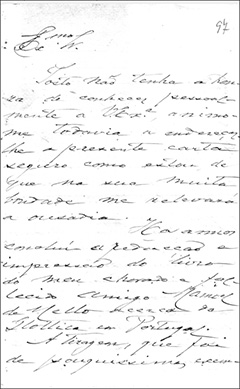 97
Ex.mo Sr.
Posto não tenha a hon
ra de conhecer pessoal
mente a V. Ex.ª animo-
me todavia a endereçar
lhe a presente carta
seguro como estou de
que na sua muita
bondade me relevará
a ousadia.
Ha annos
conclui a redacção e
impressão do livro
do meu chorado e fal
lecido amigo Manoel
de Mello ácerca da
Glottica em Portugal.
A tiragem, que foi
de pouquissimos exem